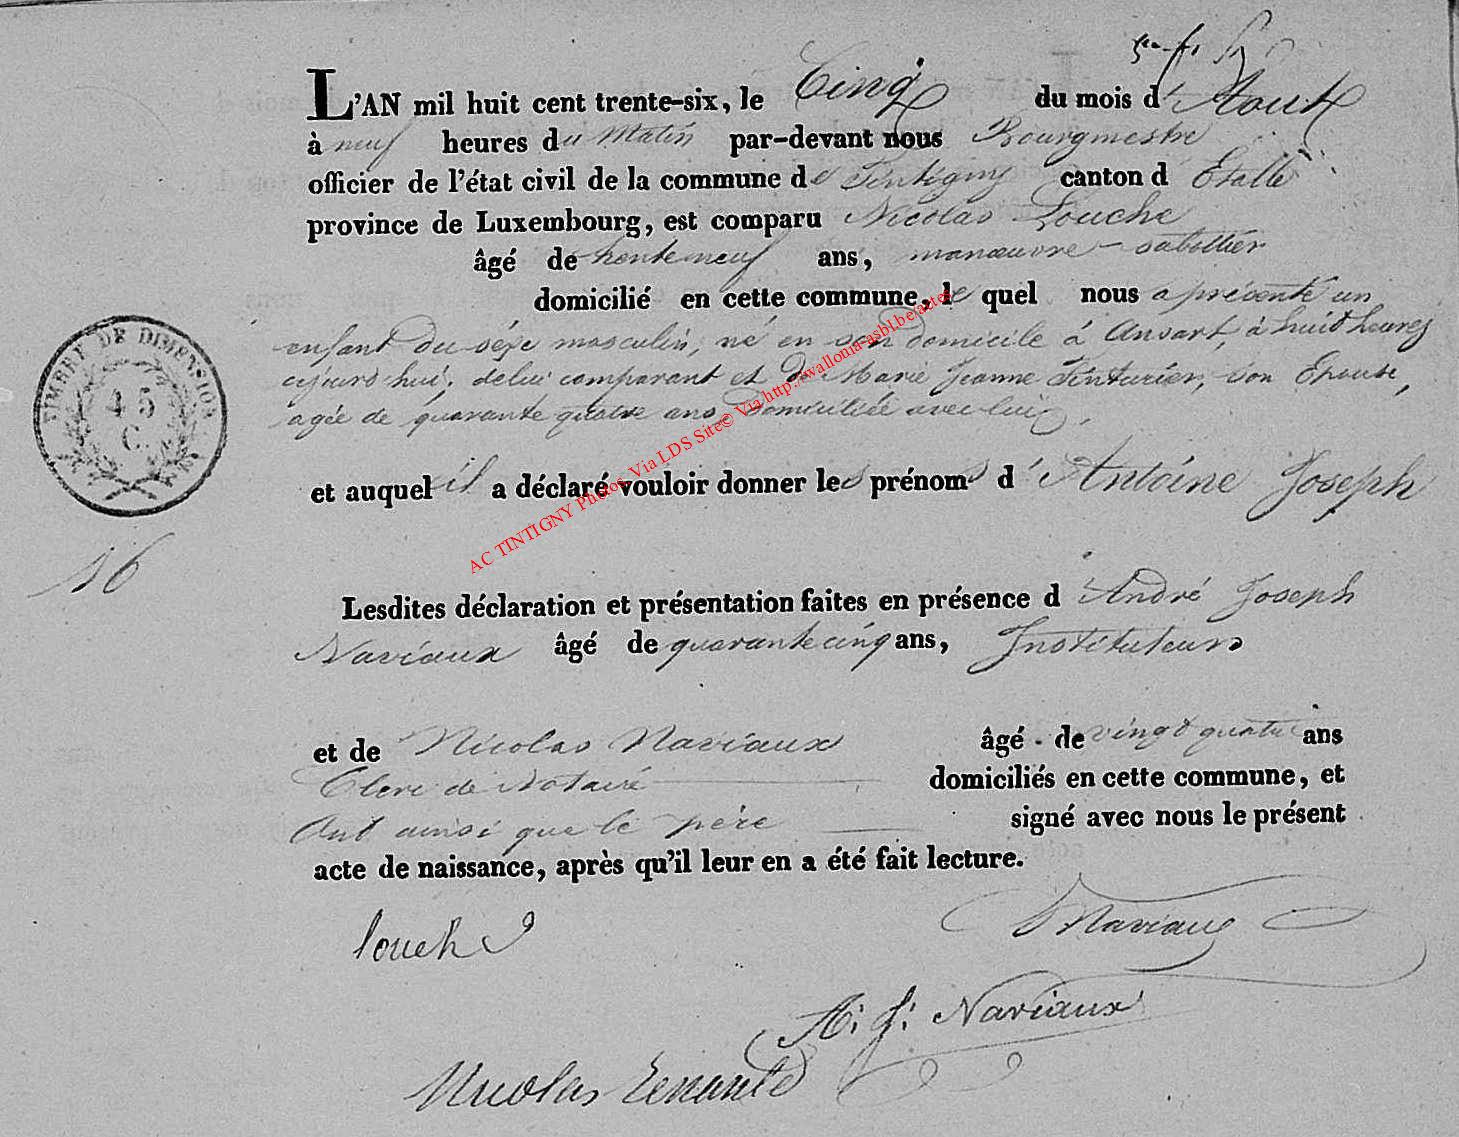 L'AN mil huit cent trente-six, le Cinq du mois d'Aout
à neuf heures du Matin par-devant nous Bourgmestre
officier de l'état civil de la commune de Tintigny canton d Etalle
province de Luxembourg, est comparu Nicolas Louche
âgé de trente neuf ans, manœuvre - sabottier
domicilié en cette commune, le quel nous a présenté un
enfant du séxe masculin, né en son domicile à Ansart, à huit heures
de lui comparant et de Marie Jeanne Tinturier, son Epouse,
agée de quarante quatre ans, domiciliée avec lui,
et auquel il a déclaré vouloir donner les prénoms d'Antoine Joseph
Lesdites déclaration et présentation faites en présence d'André Joseph
Naviaux âgé de quarante cinq ans, Instituteur
et de Nicolas Naviaux âgé de vingt quatre ans
Clerc de Notaire domiciliés en cette commune, et
Ont ainsi que le père signé avec nous le présent
acte de naissance, après qu'il leur en a été fait lecture.
louche
Naviaux
A: J: Naviaux
Nicolas
TIMBRE DE DIMENSION
45
C.
16
AC TINTIGNY Photos Via LDS Site© Via http://wallonia-asbl.be/actes